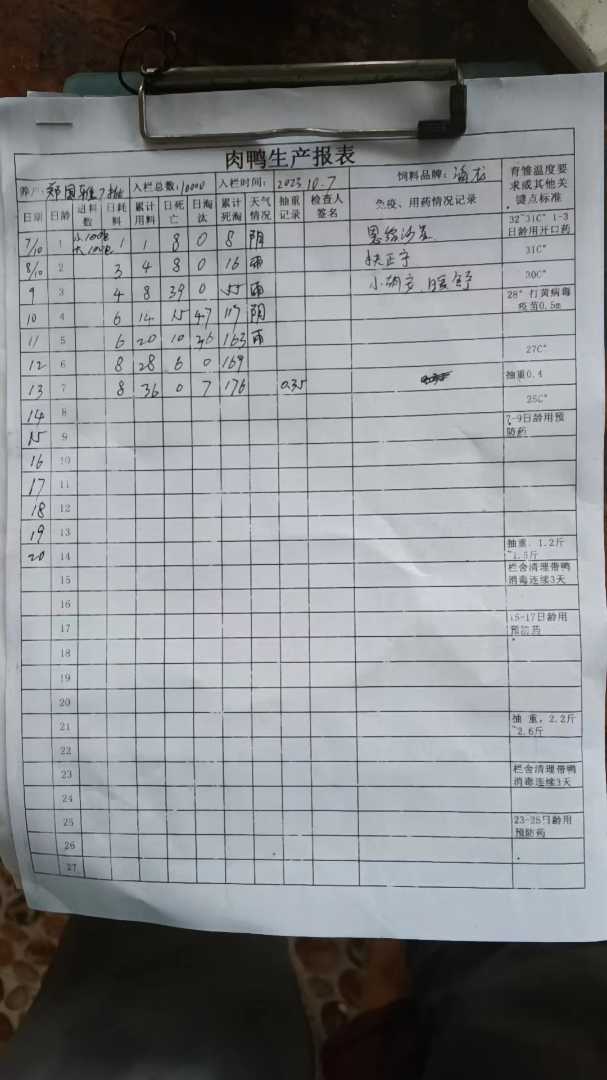 肉鸭生产报表
养户: 入栏总数:10000 入栏时间: 2023.10.7 饲料品牌: 育雏温度要求或其他关键点标准
日期 日龄 进料数 日耗料 累计用料 日死亡 日淘汰 累计死淘 天气情况 抽重记录 检查人签名 免疫、用药情况记录
7/10 1 小100包 大100包 1 1 8 0 8 阴 32~31C° 1-3日龄用开口药
8/10 2 3 4 8 0 16 雨 31C°
9 3 4 8 39 0 55 雨 30C°
10 4 6 14 15 47 117 阴 28° 打黄病毒疫苗0.5m
11 5 6 20 10 36 163 雨
12 6 8 28 6 0 169 27C°
13 7 8 36 0 7 176 0.35 抽重0.4
25C°
14 8
15 9 7-9日龄用预防药
16 10
17 11
18 12
19 13
20 14 抽重：1.2斤~1.5斤
15 栏舍清理带鸭消毒连续3天
16
17 15-17日龄用预防药
18
19
20
21 抽重：2.2斤~2.6斤
22
23 栏舍清理带鸭消毒连续3天
24
25 23-25日龄用预防药
26
27